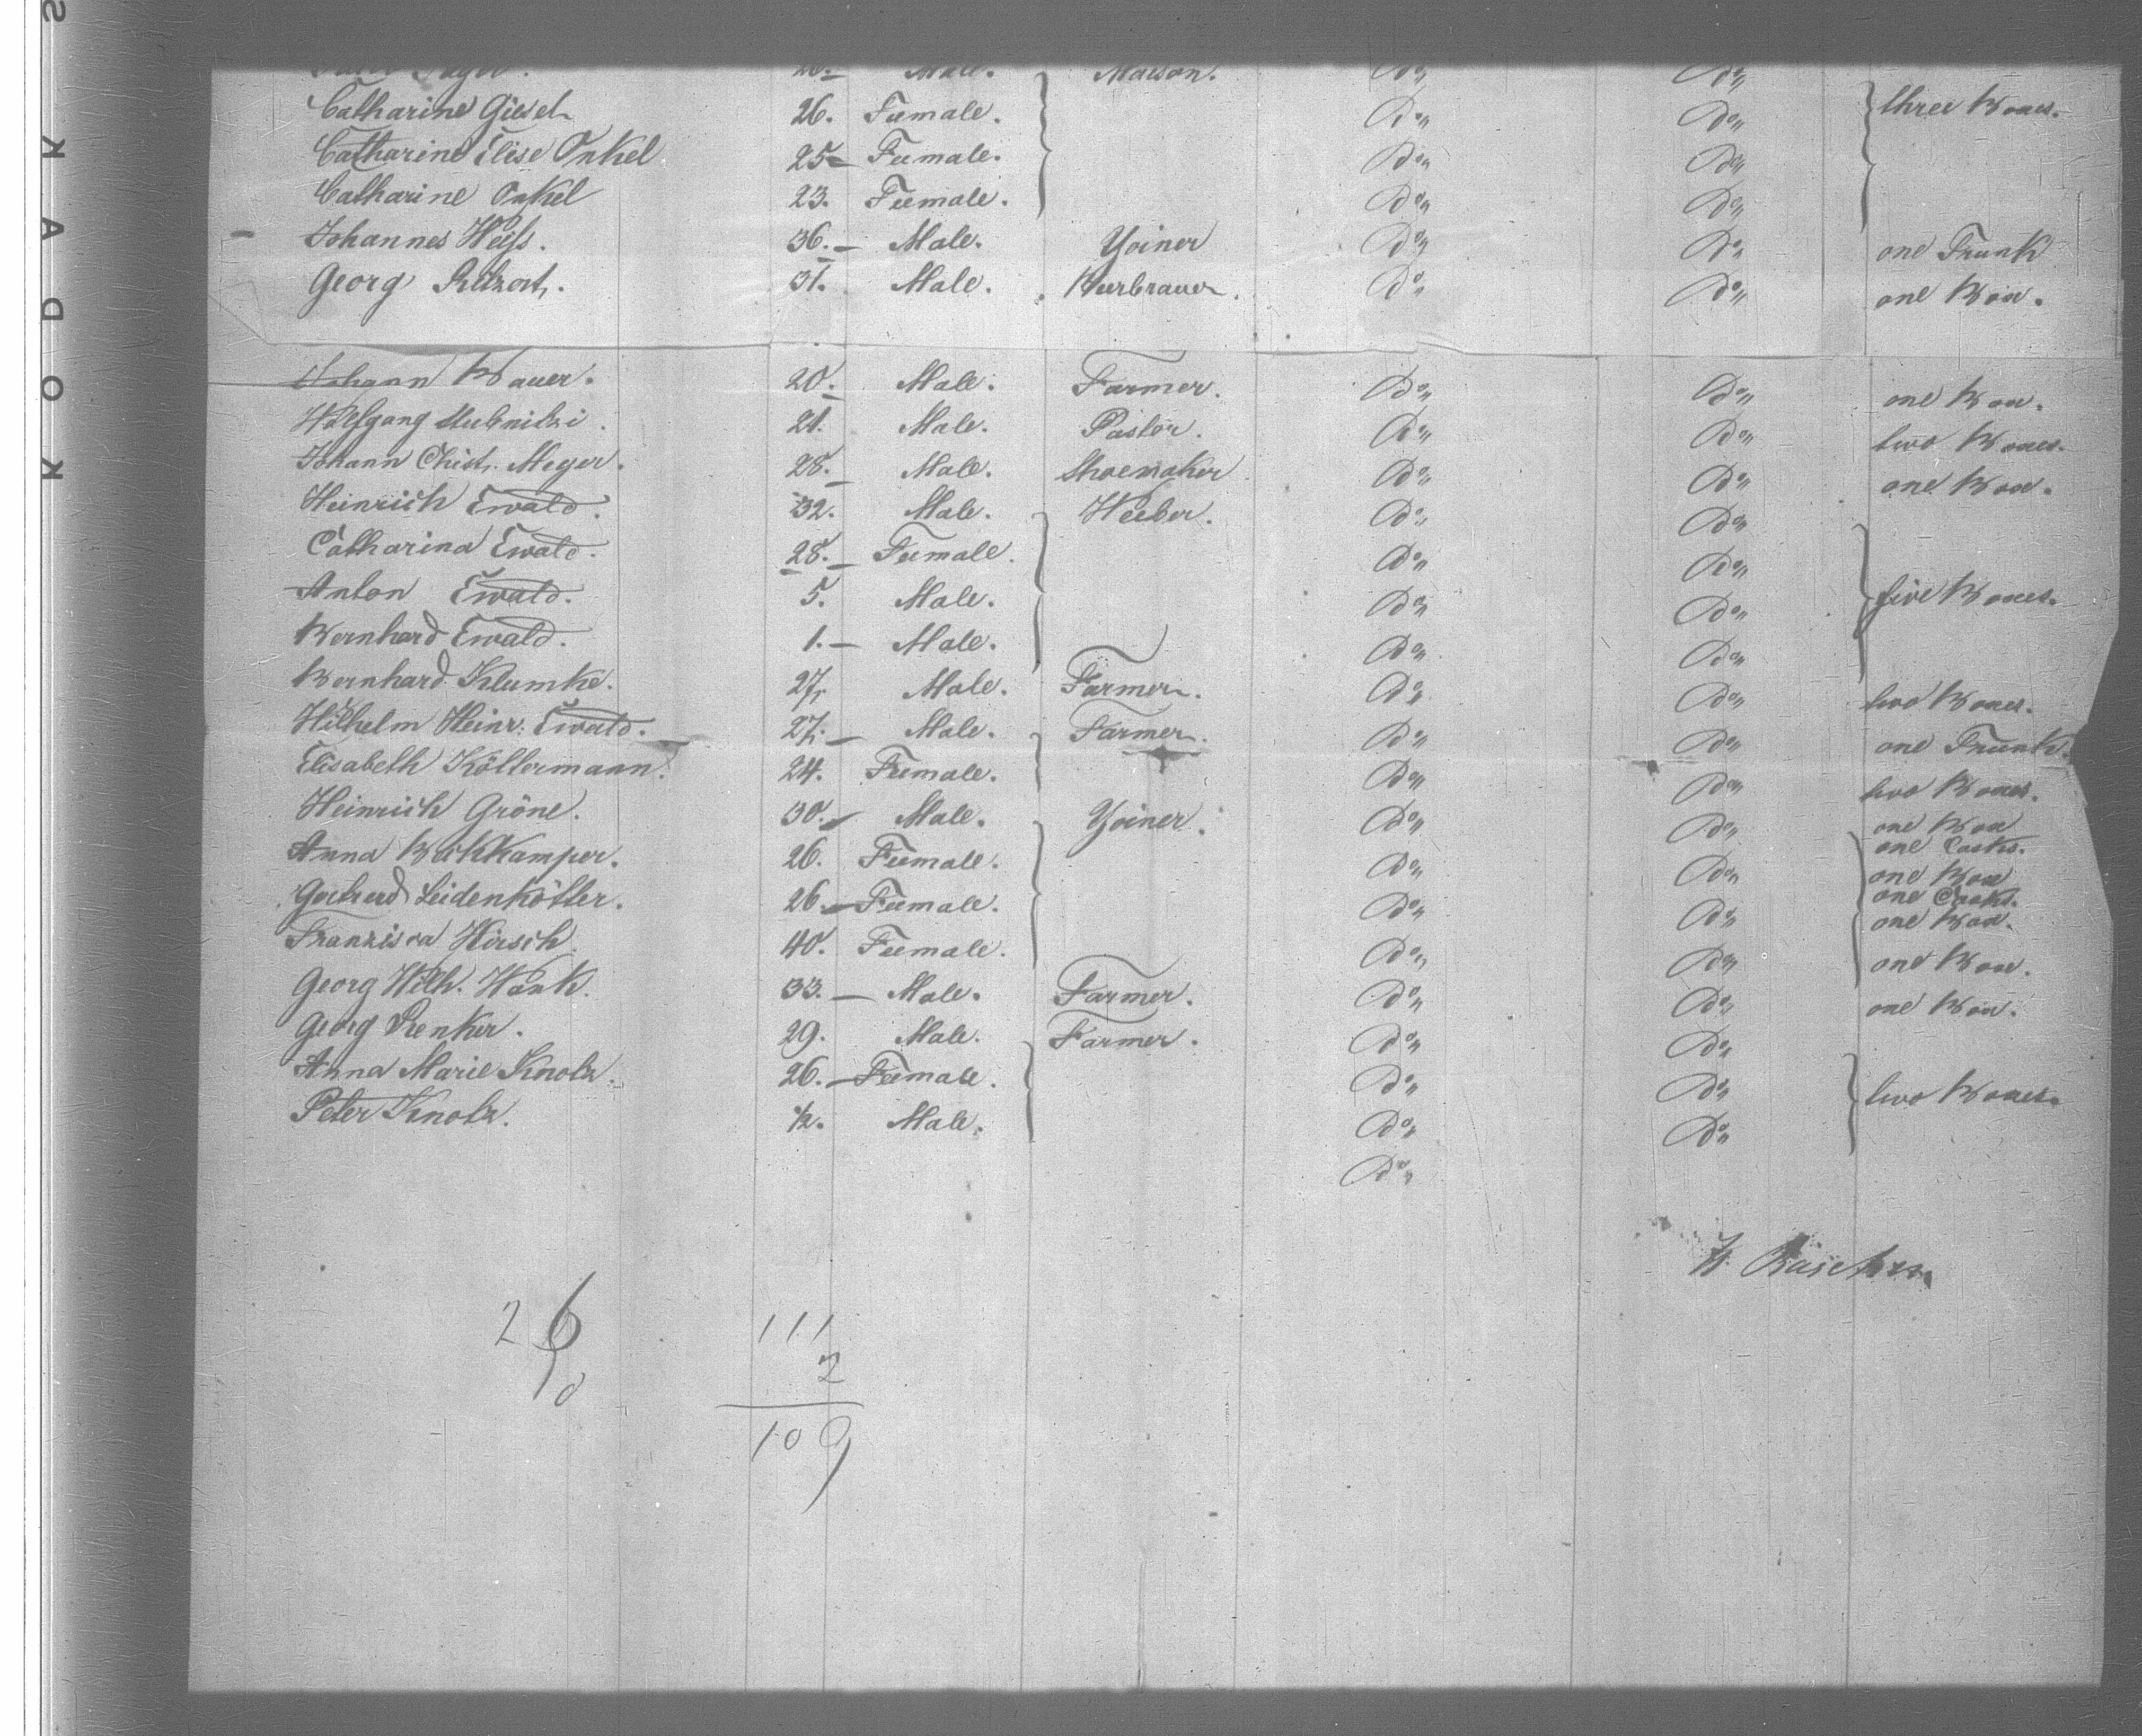 Male. Maison. Do" Do"
Catharine Giesel 26. Feemale. Do" Do" three Boxes.
Catharine Elise Onkel 25 Feemale. Do" Do"
Catharine Onkel 23. Feemale. Do" Do"
Johannes Heifs. 36. Male. Yoiner Do" Do" one Trunk
Georg 31. Male. Beerbrauer. Do" Do" one Box.
Johann Bauer. 20. Male. Farmer. Do" Do" one Box.
Wolfgang Stubnitzi. 21. Male. Pastor. Do" Do" two Boxes.
Johann Christ. Meyer. 28. Male. Shoemaker Do" Do" one Box.
Heinrich Ewald. 32. Male. Weeber. Do" Do"
Catharina Ewald. 28. Feemale. Do" Do"
Anton Ewald. 5. Male. Do" Do" five Boxes.
Bernhard Ewald. 1. Male. Do" Do"
Bernhard Klumke. 27. Male. Farmer. Do" Do" two Boxes.
Wilhelm Heinr. Ewald. 27. Male. Farmer. Do" Do" one Trunk.
Elisabeth Köllermann. 24. Feemale. Do" Do" two Boxes.
Heinrich Gröne. 30. Male. Yoiner. Do" Do" one Box
one Casks.
Anna Bakkamper. 26. Feemale. Do" Do" one Box
one Casks.
Gertrud Leidenkötter. 26. Feemale. Do" Do" one Box.
Franzisca Hirsch. 40. Feemale. Do" Do" one Box.
Georg Wilh. Hank. 33. Male. Farmer. Do" Do" one Box.
Georg Renker. 29. Male. Farmer. Do" Do"
Anna Marie Knolz. 26. Feemale. Do" Do" two Boxes.
Peter Knolz. 1/2. Male. Do" Do"
Do"
26
111
2
109
KODAK